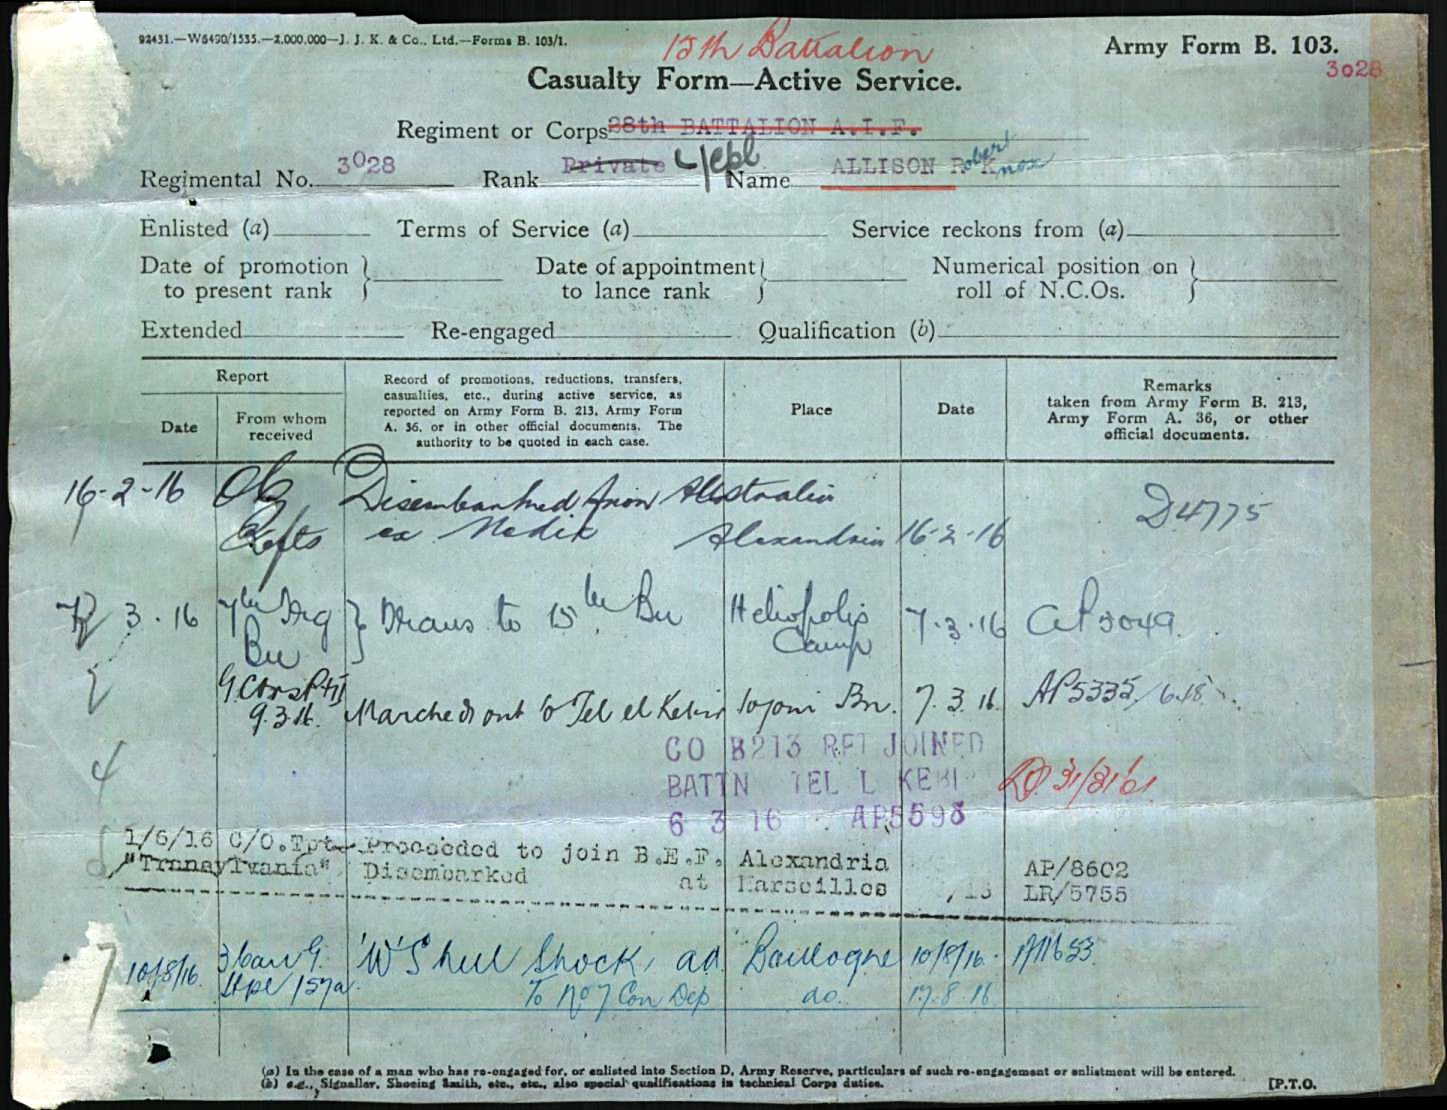 92431.—W6490/1535.—2,000,000—J. J. K. & Co., Ltd.—Forms B. 103/1.
15th Battalion
Army Form B. 103.
3028
Casualty Form—Active Service.
Regiment or Corps 28th BATTALION A.I.F.
Regimental No. 3028 Rank Private L/Cpl Name ALLISON Robert Knox
Enlisted (a) Terms of Service (a) Service reckons from (a)
Date of promotion to present rank } Date of appointment to lance rank } Numerical position on roll of N.C.Os. }
Extended Re-engaged Qualification (b)
Report
Date
From whom received
Record of promotions, reductions, transfers,
casualties, etc., during active service, as
reported on Army Form B. 213, Army Form
A. 36, or in other official documents. The
authority to be quoted in each case.
Place
Date
Remarks
taken from Army Form B. 213,
Army Form A. 36, or other
official documents.
16-2-16 OC Disembarked from Australia D4775
Refts ex Medic Alexandria 16-2-16
3.16 7th Trg } Trans to 15th Bn Heliopolis 7.3.16 AP5049
Bn Camp
9.3.16. Marched out to Tel el Kebir to join Bn. 7.3.16. AP5335/
CO B213 RFT JOINED
BATTN TEL L KEBI
6 3 16 AP5598
4
1/6/16 C/O.Tpt. Proceeded to join B.E.F. Alexandria AP/8602
"Trnnaylvania" Disembarked at Marseilles /16 LR/5755
7
10/8/16. 3 Can G. 'W' Shell Shock, ad Boulogne 10/8/16.
Hpl 157a To No 7 Con Dep do. 17.8.16
(a) In the case of a man who has re-engaged for, or enlisted into Section D, Army Reserve, particulars of such re-engagement or enlistment will be entered.
(b) e.g., Signaller, Shoeing Smith, etc., etc., also special qualifications in technical Corps duties.
[P.T.O.